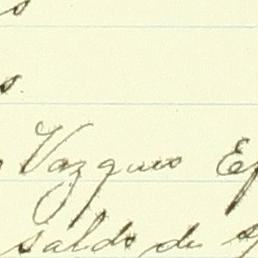 s
s.
Vazques E
saldo de